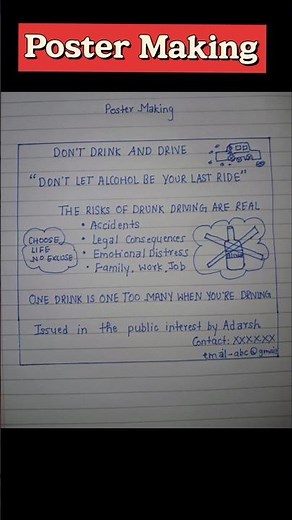 Poster Making
Poster Making
DON'T DRINK AND DRIVE
"DON'T LET ALCOHOL BE YOUR LAST RIDE"
THE RISKS OF DRUNK DRIVING ARE REAL
• Accidents
• Legal Consequences
• Emotional Distress
• Family, Work, Job
CHOOSE
LIFE
NO EXCUSE
ONE DRINK IS ONE TOO MANY WHEN YOU'RE DRIVING
Issued in the public interest by Adarsh
Contact: XXXXXX
emal-abc@gmail